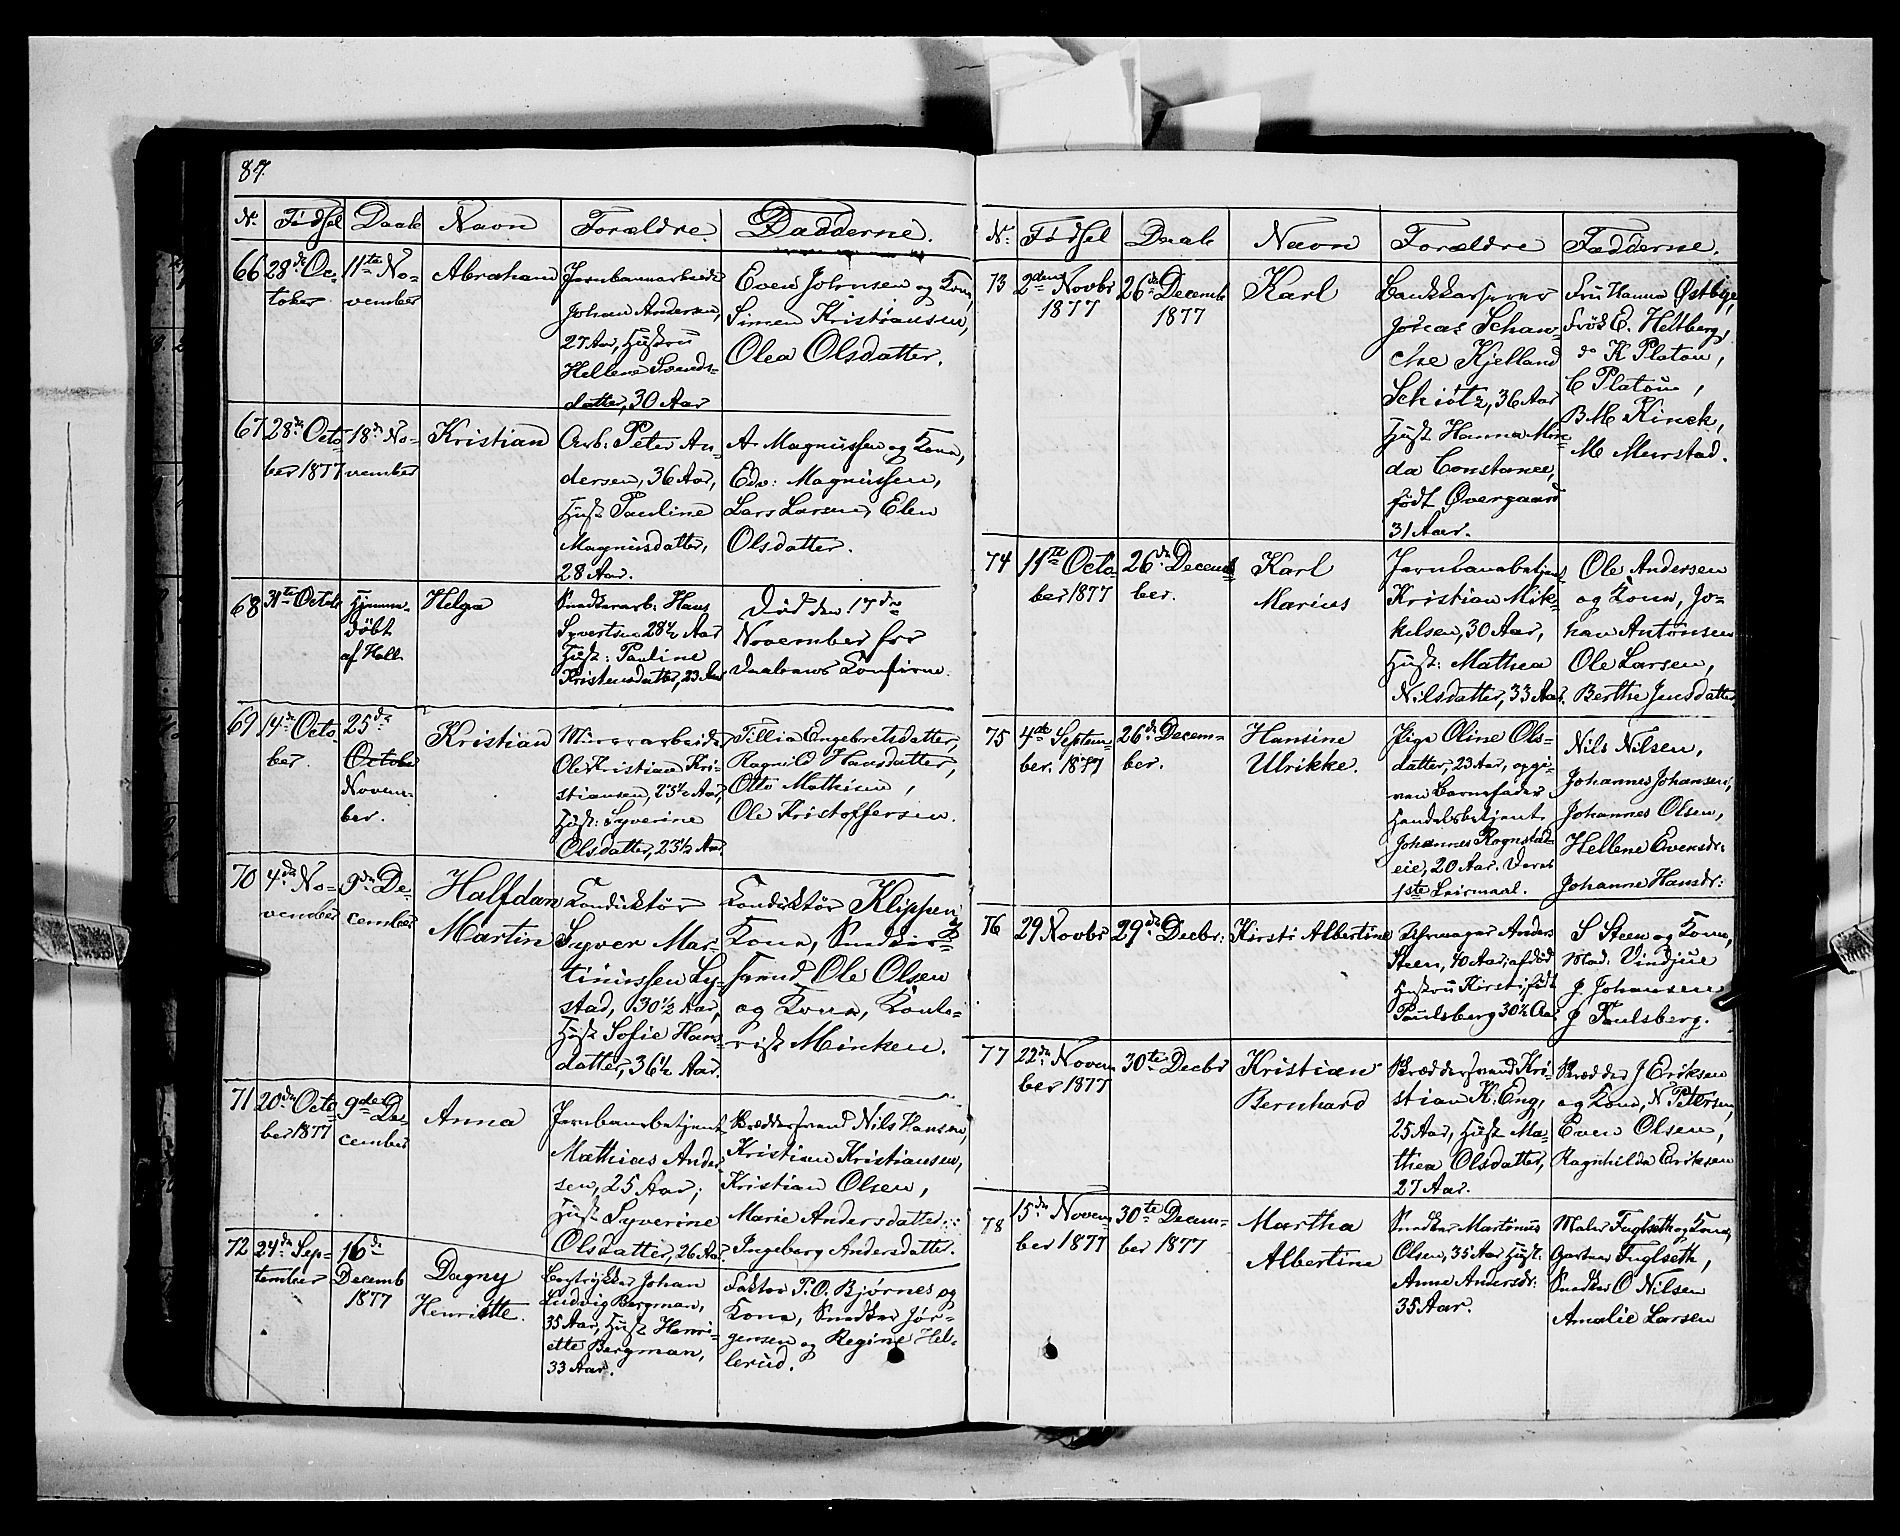 87.
N. Fødsel Daab Navn Forældre. Fadderne.
66 28de Oc-
tober
11te No-
vember
Abraham
Jernbanearbeider
Johan Andersen,
27 Aar, Hustru
Hellene Svends-
datter, 30 Aar
Even Johnsen og Kone,
Simen Kristiansen,
Olea Olsdatter.
67 28de Octo-
ber 1877
18de No-
vember
Kristian
Arb: Peter An-
dersen, 36 Aar,
Hust Pauline
Magnusdatter,
28 Aar.
A. Magnussen og Kone,
Edv: Magnussen,
Lars Larsen, Elen
Olsdatter.
68 31te Octob
Hjemme-
døbt
af Hall
Helga
Snedkerarb: Hans
Syvertsen 28½ Aar
Hust: Pauline
Kristensdatter, 23 Aar
Død den 17de
November før
Daabens Confirm.
69 14de Octo-
ber.
25de
October
Novem-
ber.
Kristian
Murerarbeider
Ole Kristian Kri-
stiansen, 25½ Aar,
Hust: Syverine
Olsdatter, 23½ Aar.
Tillia Engebretsdatter,
Ragnild Hansdatter,
Otto Mathisen,
Ole Kristoffersen.
70 4de No-
vember
9de De-
cember
Halfdan
Martin
Konduktør
Syver Mar-
tinussen Ly-
stad, 30½ Aar,
Hust Sofie Hans-
datter, 36½ Aar.
Konduktør Klippen og
Kone, Snedker-
svend Ole Olsen
og Kone, Konto-
rist Minken.
71 20de Octo-
ber 1877
9de De-
cember
Anna
Jernbanebetjent
Mathias Ander-
sen, 25 Aar;
Hust Syverine
Olsdatter, 26 Aar.
Skræddersvend Nils Hansen,
Kristian Kristiansen,
Kristian Olsen,
Marie Andersdatter:
Ingeborg Andersdatter.
72 24de Sep-
tember
16de
Decemb
1877
Dagny
Henriette.
Bogtrykker Johan
Ludvig Bergman,
35 Aar, Hust Henri-
ette Bergman,
33 Aar.
Faktor T. O. Bjørnes og
Kone, Snedker Jør-
gensen og Regine Hel-
lerud.
N. Fødsel Daab Navn Forældre Fadderne.
73 2den Novbr
1877
26de Decemb
1877
Karl
Bankkasserer
Joseas Schan-
che Kjelland
Schiøtz, 36 Aar
Hust Hanna
da Constance,
født Overgaard
31 Aar.
Fru Hanna Østbye,
Frøk E. Heltberg,
do K Platou,
C Platou,
B M Kinck,
M Murstad.
74 11te Octo-
ber 1877
26de Decem-
ber.
Karl
Marius
Jernbanebetjent
Kristian Mik-
kelsen, 30 Aar,
Hust: Mathea
Nilsdatter, 33 Aar.
Ole Andersen
og Kone, Jo-
han Antonsen
Ole Larsen,
Berthe Jensdatter
75 4de Septem-
ber. 1877
26de Decem-
ber.
Hansine
Ulrikke.
Pige Oline Ols-
datter, 23 Aar, opgi-
ven Barnefader
Handelsbetjent
Johannes Rognstad-
eie, 20 Aar. Deres
1ste Leirmaal.
Nils Nilsen,
Johannes Johansen,
Johannes Olsen,
Hellene Evensdr:
Johanne Hansdr:
76 29 Novbr
29de Decbr:
Kirsti Albertine
Uhrmager Anders
Steen, 40 Aar; afdød
Hustru Kirsti, født
Paulsberg 30½ Aar
S Steen og Kone,
Mad: Vindjue
J. Johansen
J Paulsberg.
77 22de Novem-
ber 1877
30te Decbr
Kristian
Bernhard
Skræddersvend Kri-
stian K: Eng,
25 Aar, Hust Ma-
thea Olsdatter,
27 Aar.
Skrædder J Eriksen
og Kone, N Petersen,
Even Olsen,
Ragnhilda Eriksen
78 15de Novem-
ber 1877
30te Decem-
ber 1877
Martha
Albertine
Snedker Martinus
Olsen, 35 Aar Hust.
Anne Andersdr:
35 Aar.
Maler Fuglseth og Kone,
Gartner Fuglseth,
Snedker O Nilsen
Amalie Larsen